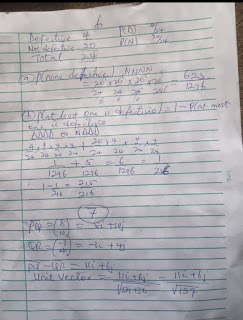 6
Defective 4 P(D) 4/24
Not defective 20 P(N) 20/24
Total 24
(a) P(none defective) NNNN
= 20 × 20 × 20 × 20 = 625
24 24 24 24 1296
(b) P(at least one is defective) = 1 - P(at most
one is defective
DDDD or NDDD
4 × 4 × 4 × 4 + 20 × 4 × 4 × 4
24 24 24 24 24 24 24 24
1 + 5 = 6 = 1
1296 1296 1296 216
1 - 1 = 215
216 216
7
PQ = = 8i + 10j
QR = (-3 4) = -3i + 4j
PQ - QR = 11i + 6j
Unit Vector = 11i + 6j = 11i + 6j
√121+36 √157